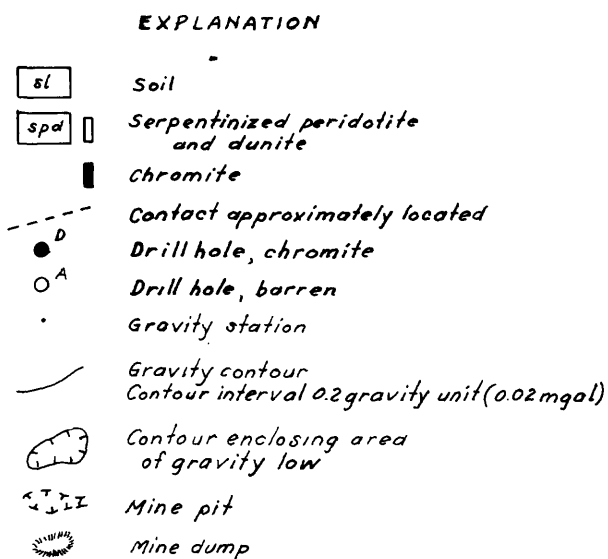 EXPLANATION
sl Soil
spd Serpentinized peridotite
and dunite
Chromite
Contact approximately located
D Drill hole, chromite
A Drill hole, barren
Gravity station
Gravity contour
Contour interval 0.2 gravity unit (0.02 mgal)
Contour enclosing area
of gravity low
Mine pit
Mine dump